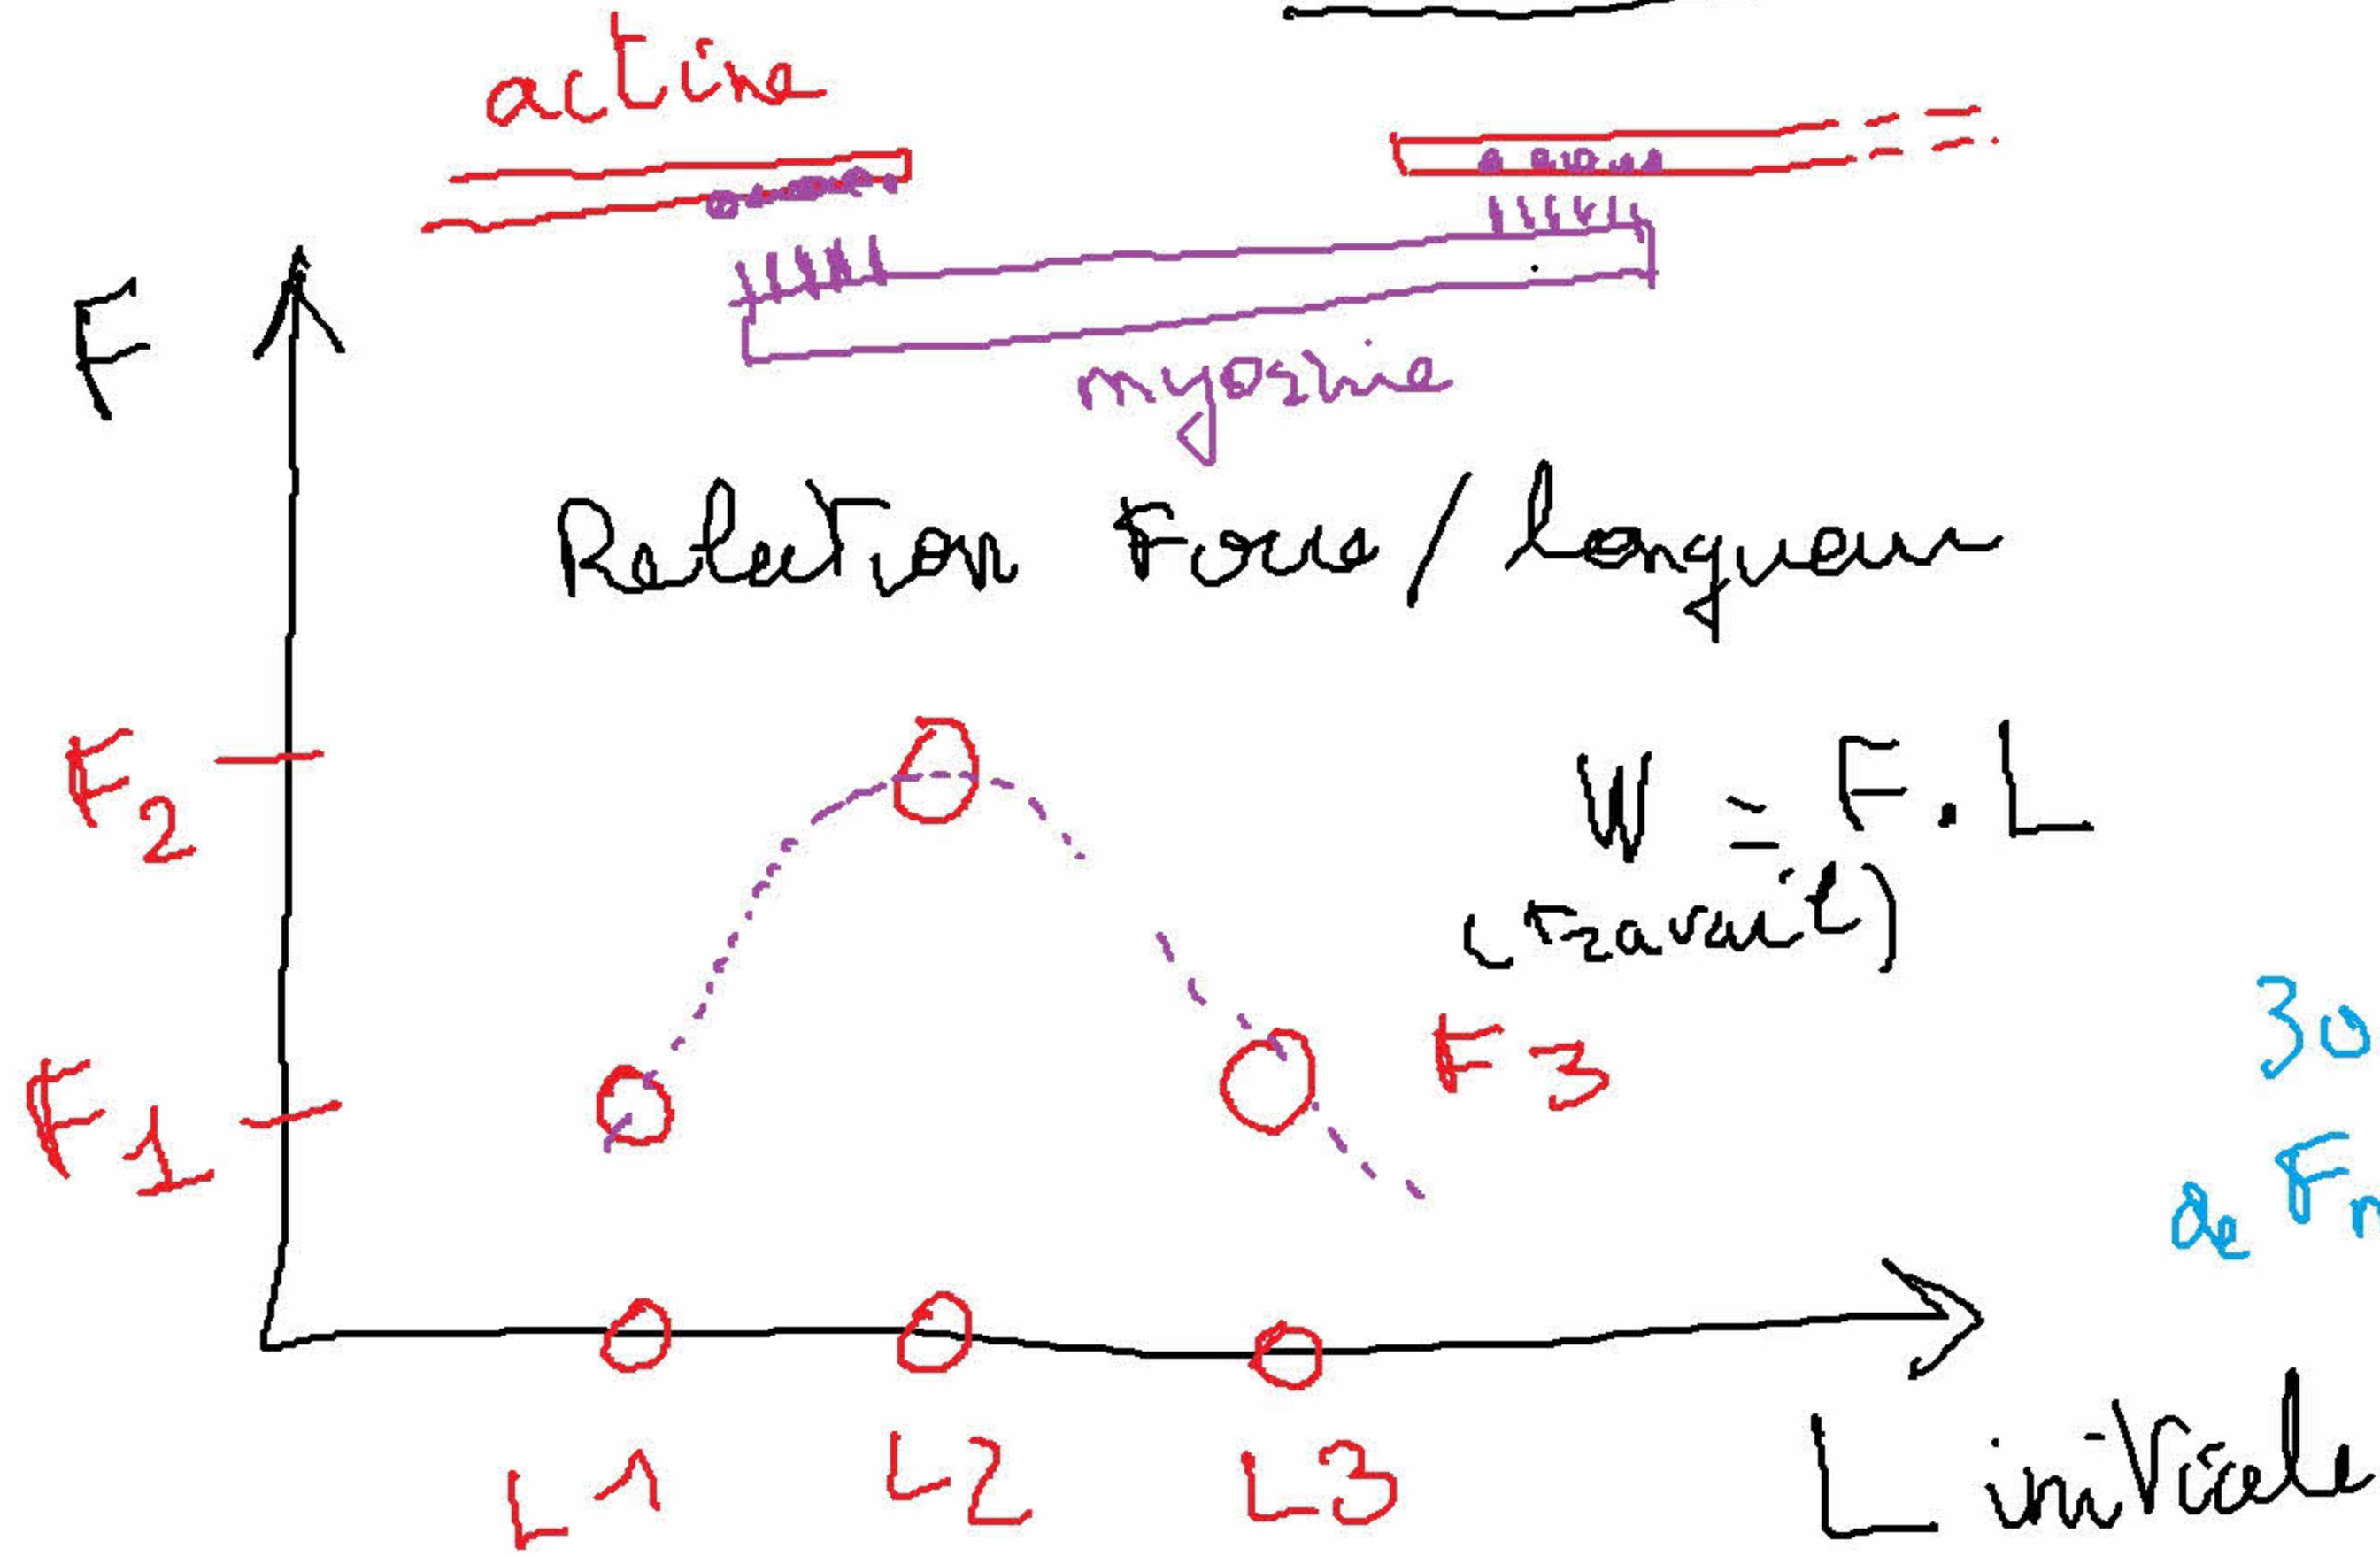 actine
F
myosine
Relation Force/longueur
F2
W = F.L
(travail)
F1
F3
30
de F
L1 L2 L3
L initiale